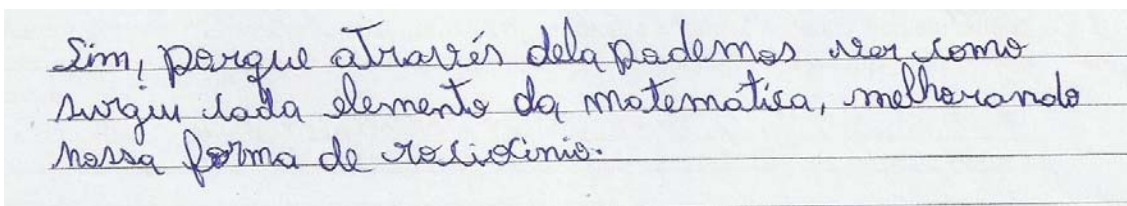 Sim, porque através dela podemos ver como
surgiu cada elemento da matemática, melhorando
nossa forma de raciocínio.